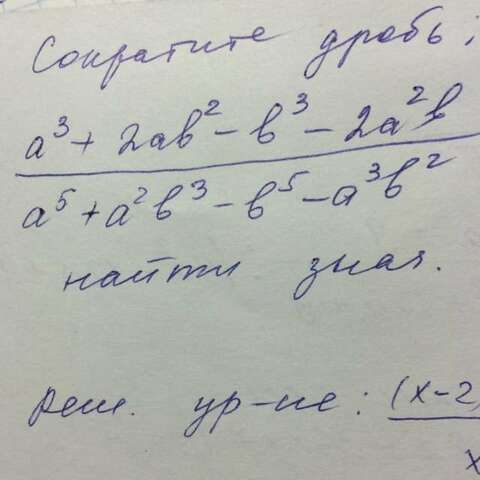 Сократите дробь;
a³ + 2ab² - b³ - 2a²b
a⁵ + a²b³ - b⁵ - a³b²
найти знач.
реш. ур-ие: (x-2
x